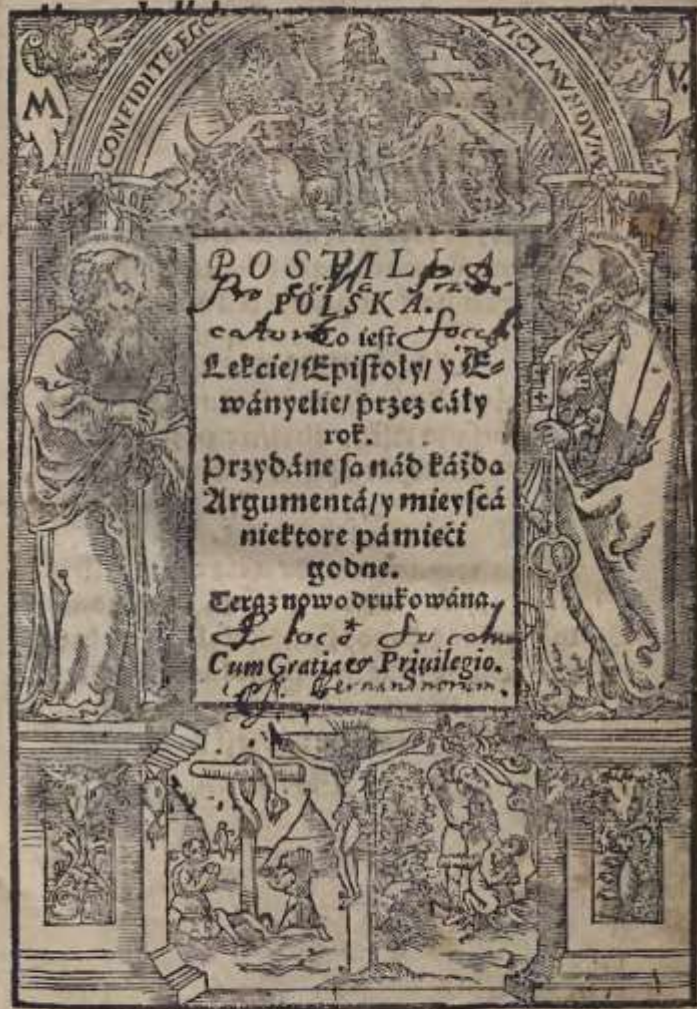 M
V.
CONFIDITE EGO VICI MVNDVM
POSTILLA
POLSKA.
To iest
Lekcie/ Epistoly/ y E-
wányelie/ przez cáły
rok.
Przydáne sa nád káżda
Argumentá/ y mieyscá
niektore pámieći
godne.
Teraz nowo drukowána.
Cum Gratia & Priuilegio.
Bernardinorum.